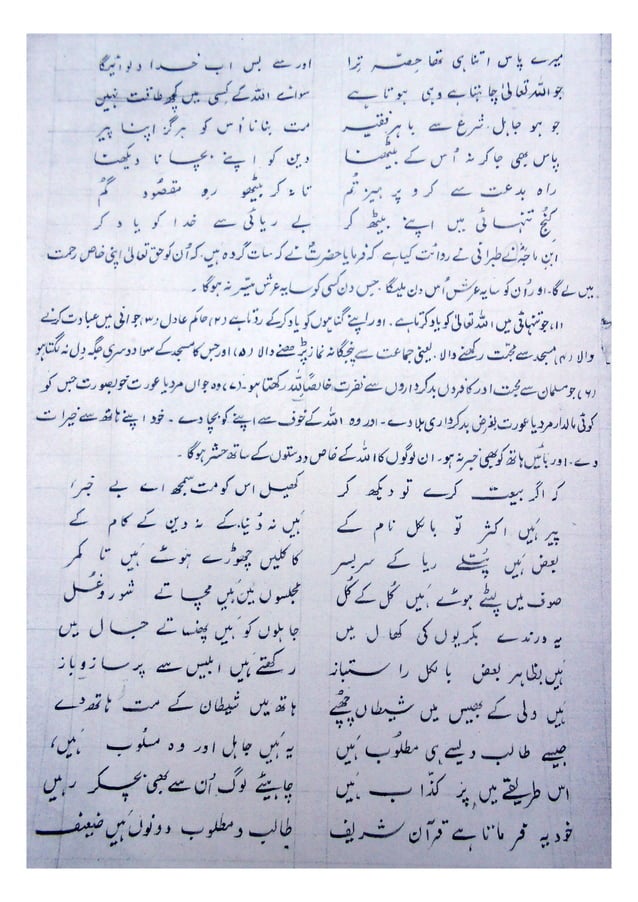 میرے پاس اتنا ہی تھا حِصّہ تِرا اور سے بس اب خدا دِلوائیگا
جو اللہ تعالیٰ چاہتا ہے وہی ہوتا ہے سوائے اللہ کے کسی میں کچھ طاقت نہیں
جو ہو جاہل شرع سے باہر فقیر مت بنانا اُس کو ہرگز اپنا پیر
پاس بھی جا کر نہ اُس کے بیٹھنا دین کو اپنے بچانا دیکھنا
راہ بدعت سے کرو پرہیز تم تا نہ کر بیٹھو رہِ مقصود گم
کُنجِ تنہائی میں اپنے بیٹھ کر بے ریائی سے خدا کو یاد کر
ابن ماجہؒ نے طبرانی نے روائت کیا ہے کہ فرمایا حضرتؐ نے کہ سات گروہ ہیں۔ کہ اُن کو حق تعالیٰ اپنی خاص رحمت
میں لے گا۔ اور اُن کو سایہ عرش اُس دن ملیگا۔ جس دن کسی کو سایہ عرش میسّر نہ ہوگا۔
(۱) جو تنہائی میں اللہ تعالیٰ کو یاد کرتا ہے۔ اور اپنے گناہوں کو یاد کر کے روتا ہے (۲) حاکم عادل (۳) جوانی میں عبادت کرنے
والا (۴) مسجد سے محبّت رکھنے والا۔ یعنی جماعت سے پنجگانہ نماز پڑھنے والا (۵) اور جس کا مسجد کے سوا دوسری جگہ دِل نہ لگتا ہو
(۶) جو مسلمان سے محبت اور کافروں بدکرداروں سے نفرت خالصاً للہ رکھتا ہو۔ (۷) وہ جواں مرد یا عورت خوبصورت جس کو
کوئی مالدار مرد یا عورت بغرض بدکرداری بلاوے۔ اور وہ اللہ کے خوف سے اپنے کو بچاوے۔ خود اپنے ہاتھ سے خیرات
دے۔ اور بائیں ہاتھ کو بھی خبر نہ ہو۔ ان لوگوں کا اللہ کے خاص دوستوں کے ساتھ حشر ہوگا۔
کہ اگر بیعت کرے تو دیکھ کر کھیل اس کو مت سمجھ اے بے خبر
پیر ہیں اکثر تو بالکل نام کے ہیں نہ دُنیا کے نہ دین کے کام کے
بعض ہیں پُتلے ریا کے سربسر کاکلیں چھوڑے ہوئے ہیں تا کمر
صوف میں لپٹے ہوئے ہیں کُل کے کُل مجلسوں میں ہیں مچاتے شور و غُل
یہ درندے بکریوں کی کھال میں جاہلوں کو ہیں پھنساتے جال میں
ہیں بظاہر بعض بالکل راستباز رکھتے ہیں ابلیس سے پر ساز و باز
ہیں ولی کے بھیس میں شیطاں چھُپے ہاتھ میں شیطان کے مت ہاتھ دے
جیسے طالب ویسے ہی مطلوُب ہیں یہ ہیں جاہل اور وہ مسلُوب ہیں
اس طریقے میں پِر کذّاب ہیں چاہیئے لوگ اُن سے بھی بچکر رہیں
خود یہ فرماتا ہے قرآن شریف طالب و مطلوب دونوں ہیں ضعیف